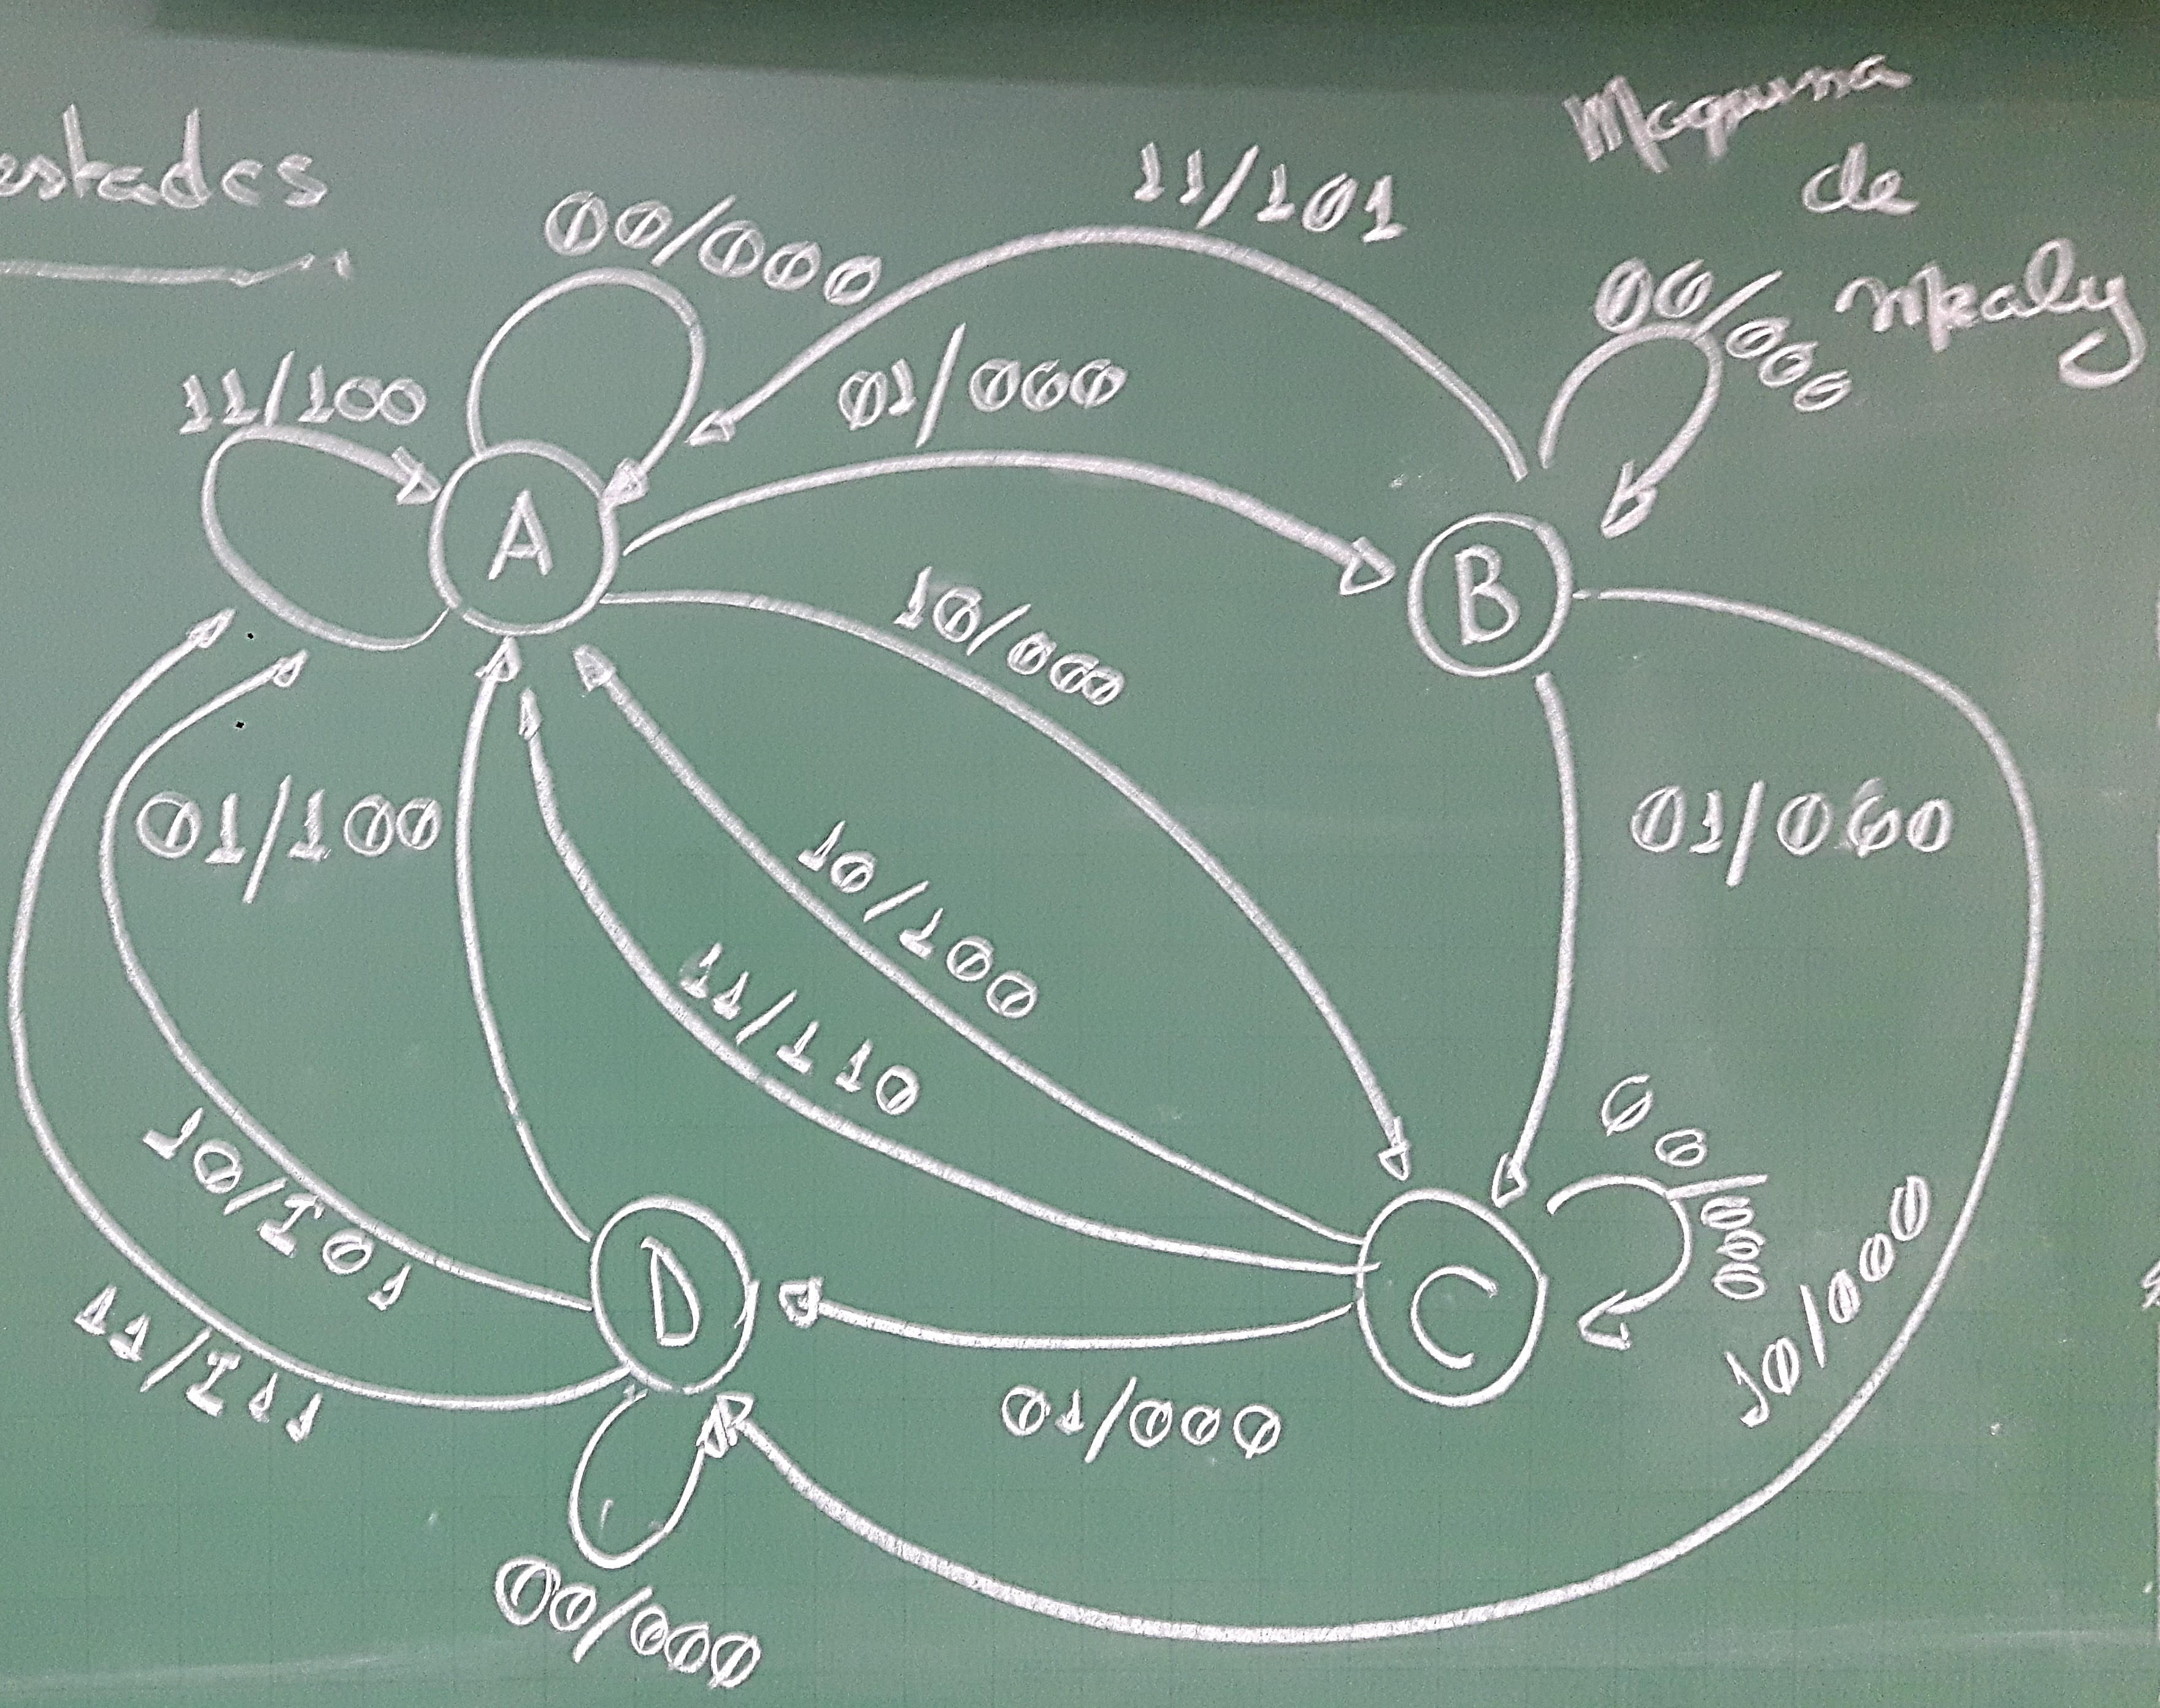 estados
Maquina
de
Mealy
00/000
11/101
00/000
11/100
01/000
A
B
10/000
01/100
01/000
10/100
11/110
00/000
10/101
11/111
D
C
10/000
01/000
00/000